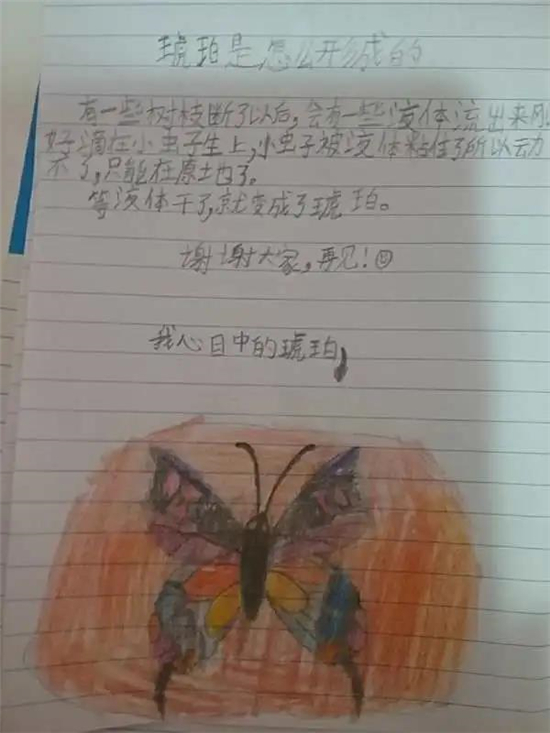 琥珀是怎么形成的
有一些树枝断了以后,会有一些液体流出来刚
好滴在小虫子生上,小虫子被液体粘住了所以动
不了,只能在原土也了。
等液体干了,就变成了琥珀。
谢谢大家,再见!
我心目中的琥珀